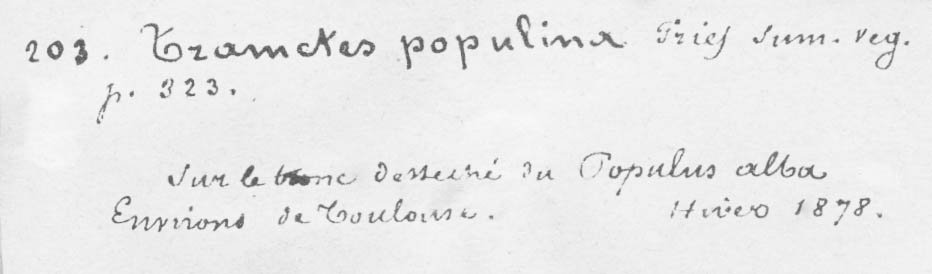 203. Trametes populina Fries Sum. veg.
p. 323.
Sur le tronc desseché du Populus alba
Environs de Toulouse. Hiver 1878.